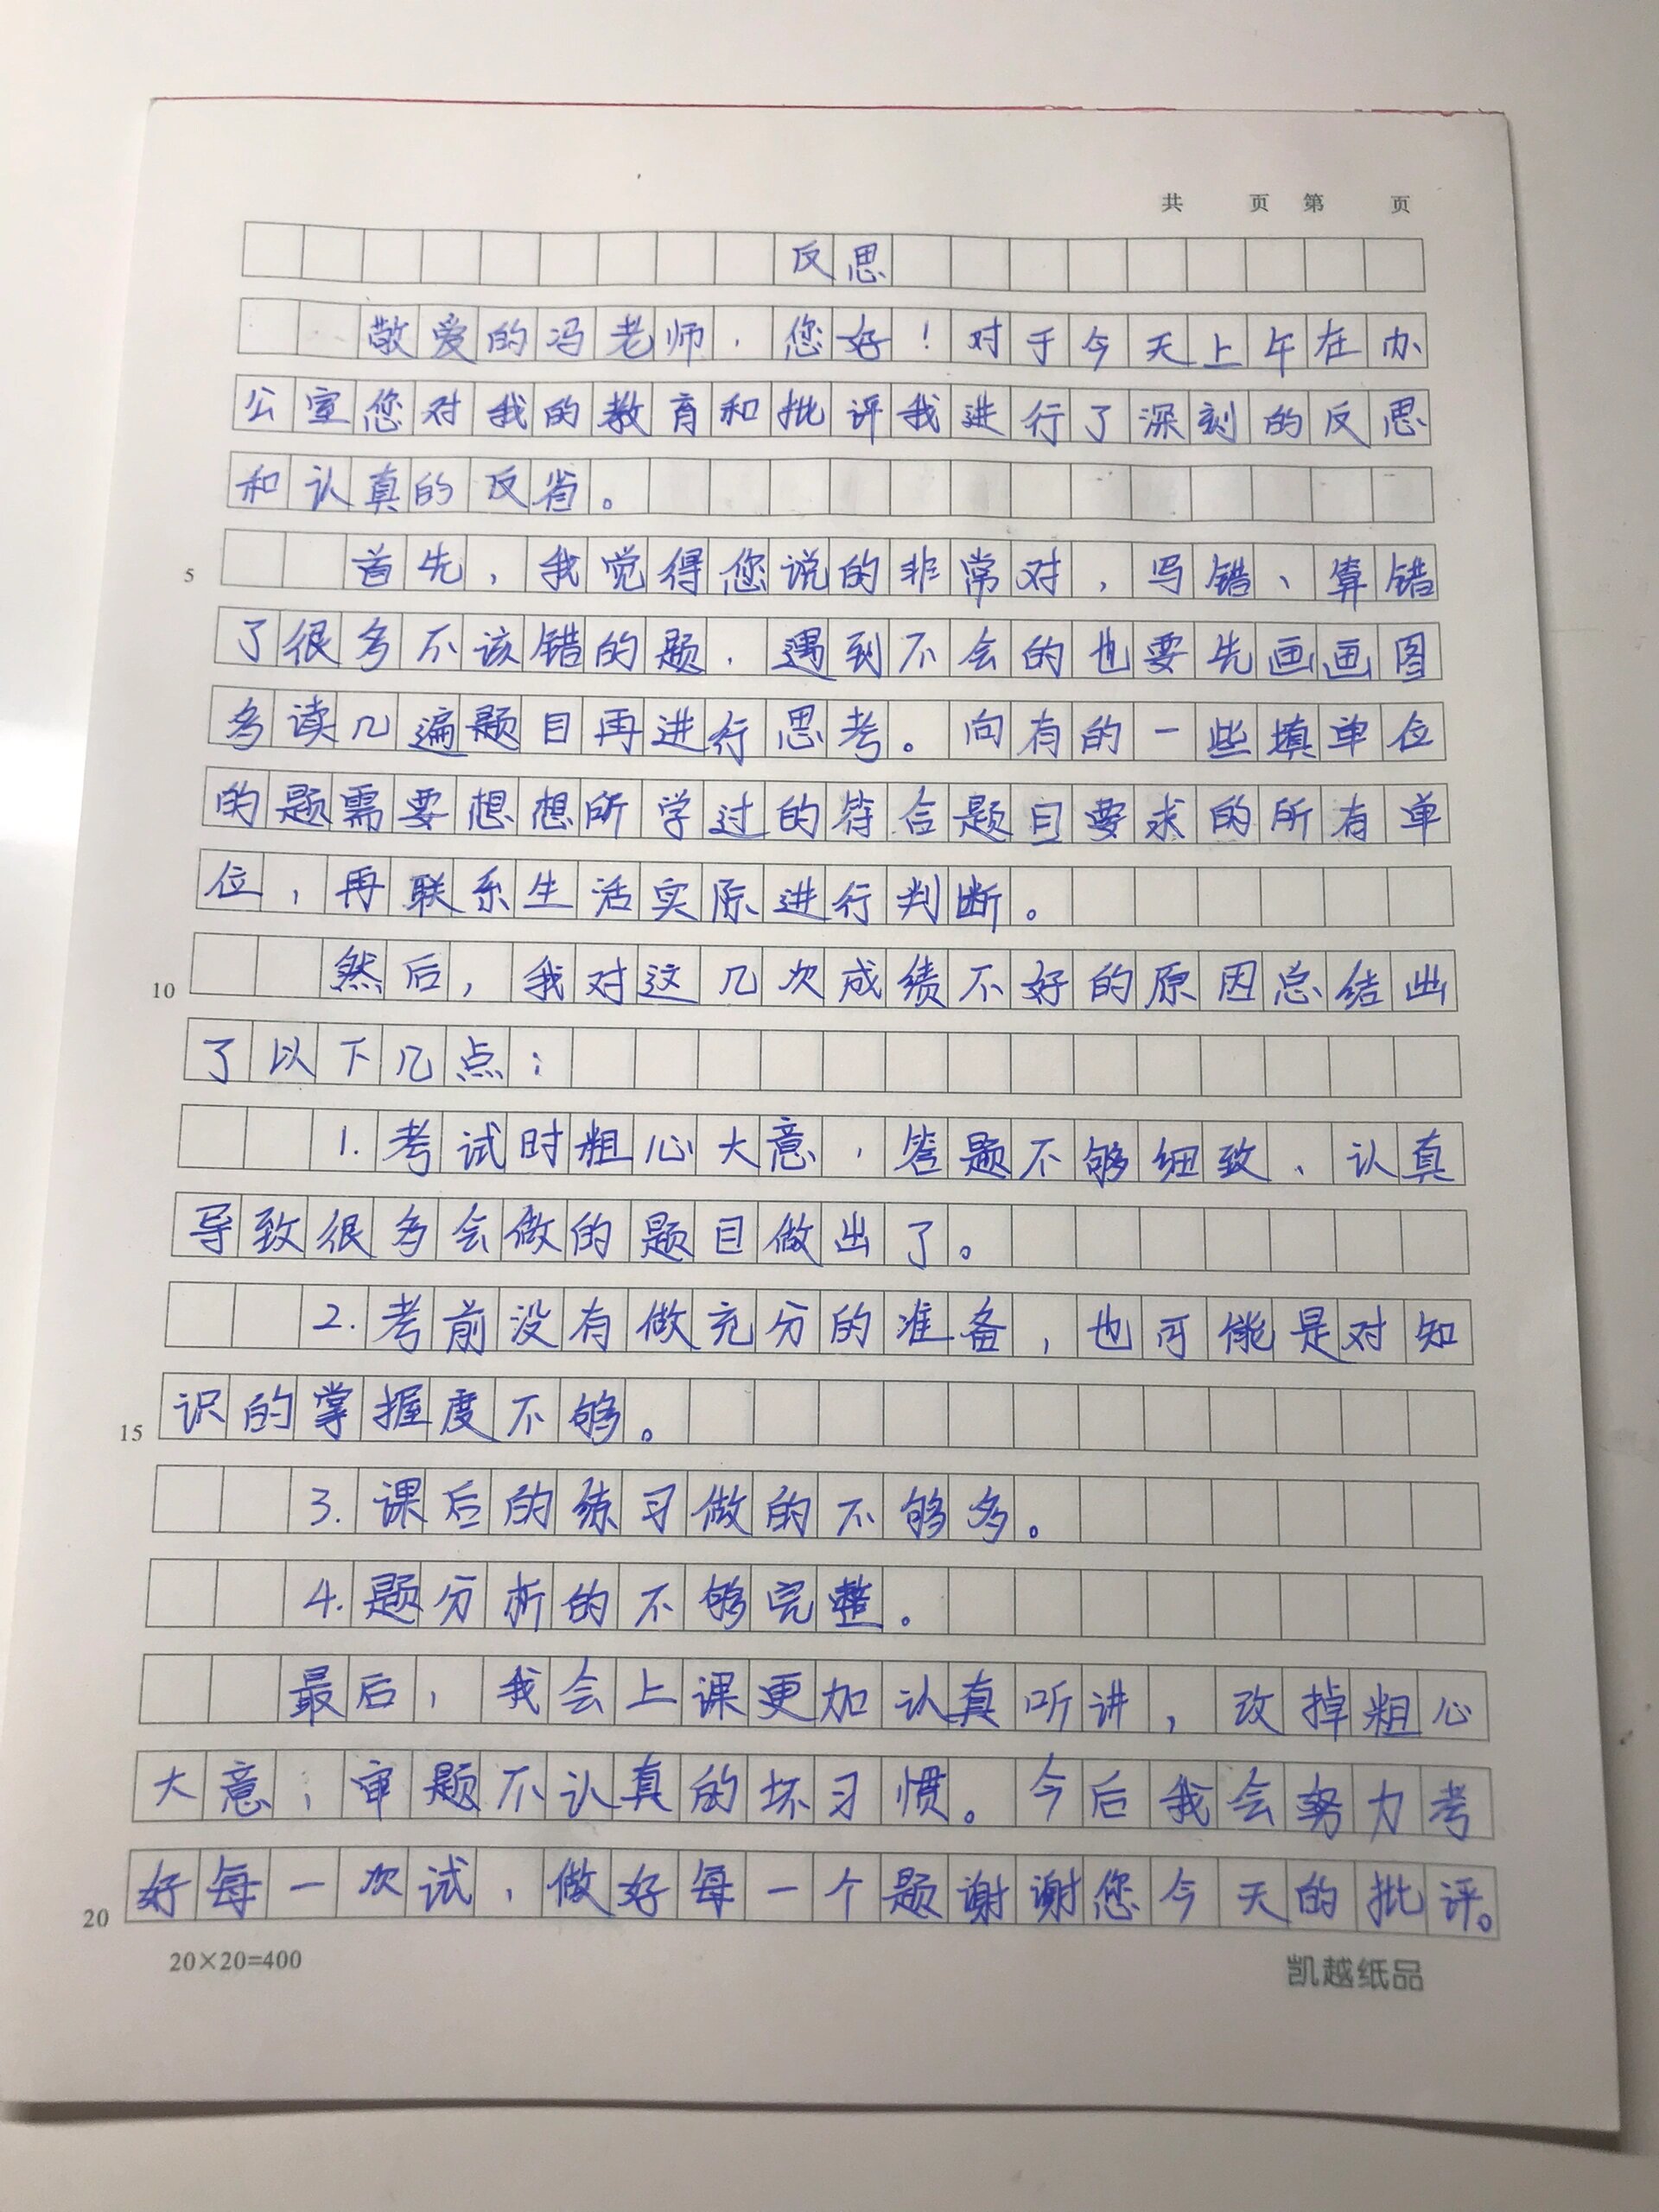 共 页 第 页
反思
敬爱的冯老师，您好！对于今天上午在办
公室您对我的教育和批评我进行了深刻的反思
和认真的反省。
5 首先，我觉得您说的非常对，写错、算错
了很多不该错的题，遇到不会的也要先画画图
多读几遍题目再进行思考。向有的一些填单位
的题需要想想所学过的符合题目要求的所有单
位，再联系生活实际进行判断。
10 然后，我对这几次成绩不好的原因总结出
了以下几点：
1.考试时粗心大意，答题不够细致、认真
导致很多会做的题目做出了。
2.考前没有做充分的准备，也可能是对知
15 识的掌握度不够。
3.课后的练习做的不够多。
4.题分析的不够完整。
最后，我会上课更加认真听讲，改掉粗心
大意；审题不认真的坏习惯。今后我会努力考
20 好每一次试，做好每一个题谢谢您今天的批评。
20×20=400 凯越纸品